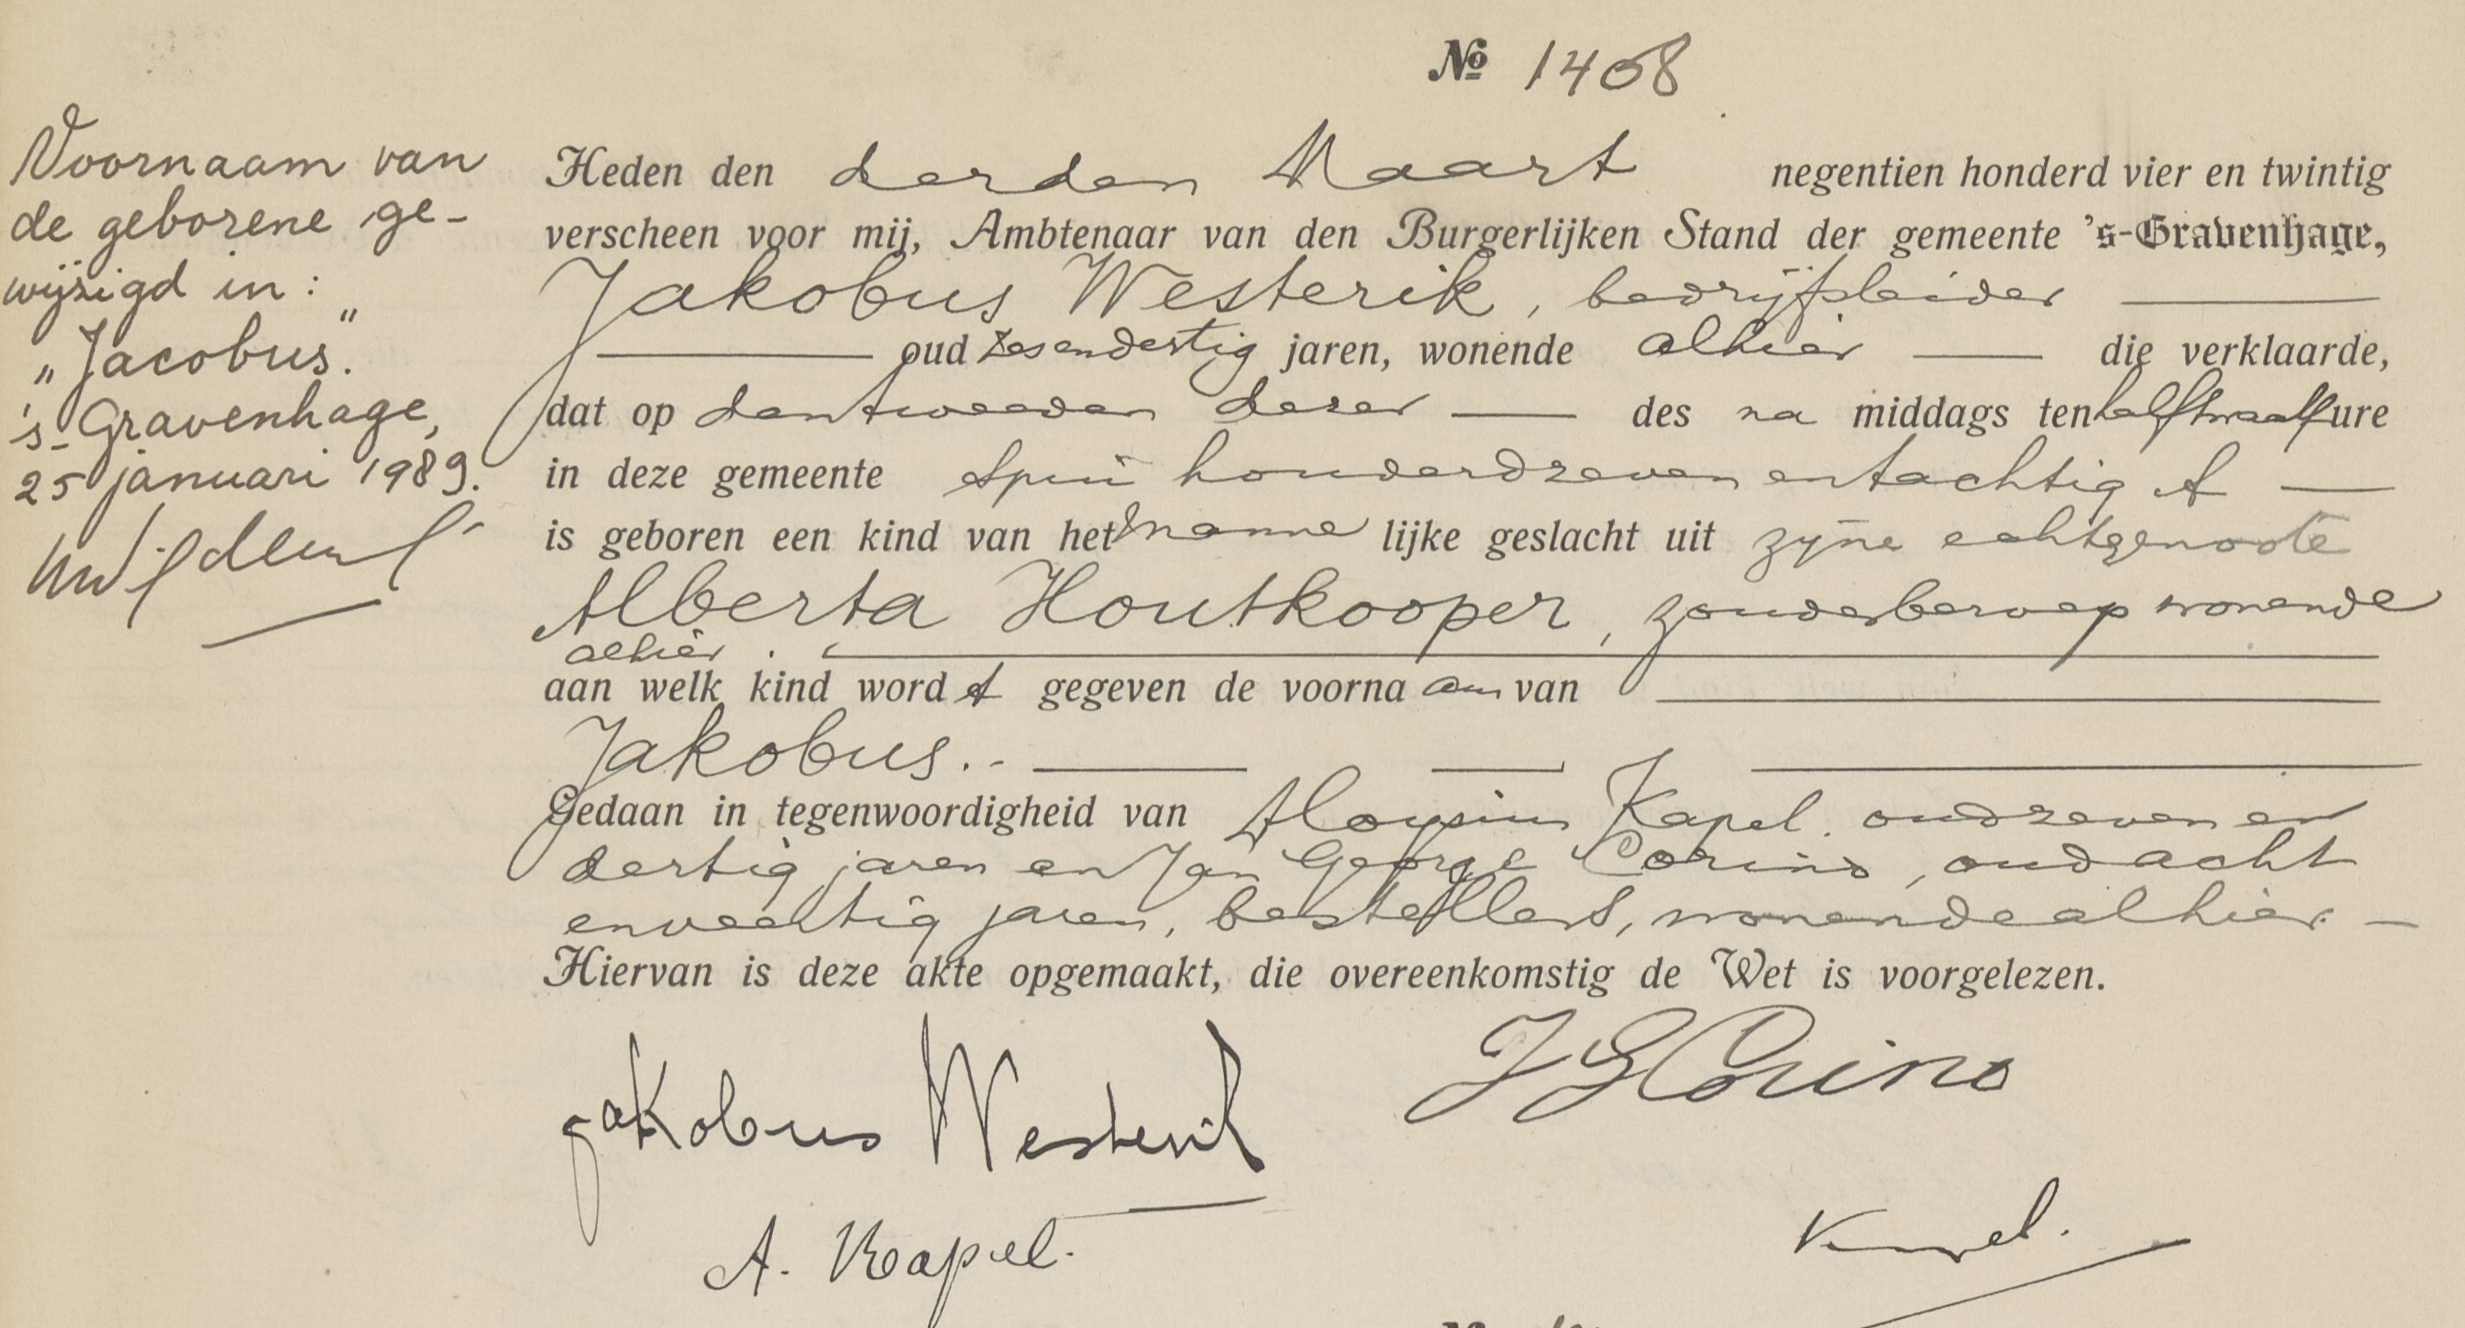 № 1408
Voornaam van
de geborene ge-
wijzigd in:
„Jacobus".
's-Gravenhage,
25 januari 1989.
Heden den derden Maart negentien honderd vier en twintig
verscheen voor mij, Ambtenaar van den Burgerlijken Stand der gemeente 's-Gravenhage,
Jakobus Westerik, bedrijfsleider
oud zesendertig jaren, wonende alhier die verklaarde,
dat op den tweeden dezer des na middags ten half twaalf ure
in deze gemeente Spui honderd zeven en tachtig A
is geboren een kind van het manne lijke geslacht uit zijne echtgenoote
Alberta Houtkooper, zonder beroep wonende
alhier.
aan welk kind word t gegeven de voorna am van
Jakobus.
Gedaan in tegenwoordigheid van Aloysius Kapel, oud zeven en
dertig jaren en Jan George Corino, oud acht
en veertig jaren, bestellers, wonende alhier.
Hiervan is deze akte opgemaakt, die overeenkomstig de Wet is voorgelezen.
Jakobus Westerik
J G Corino
A. Kapel.